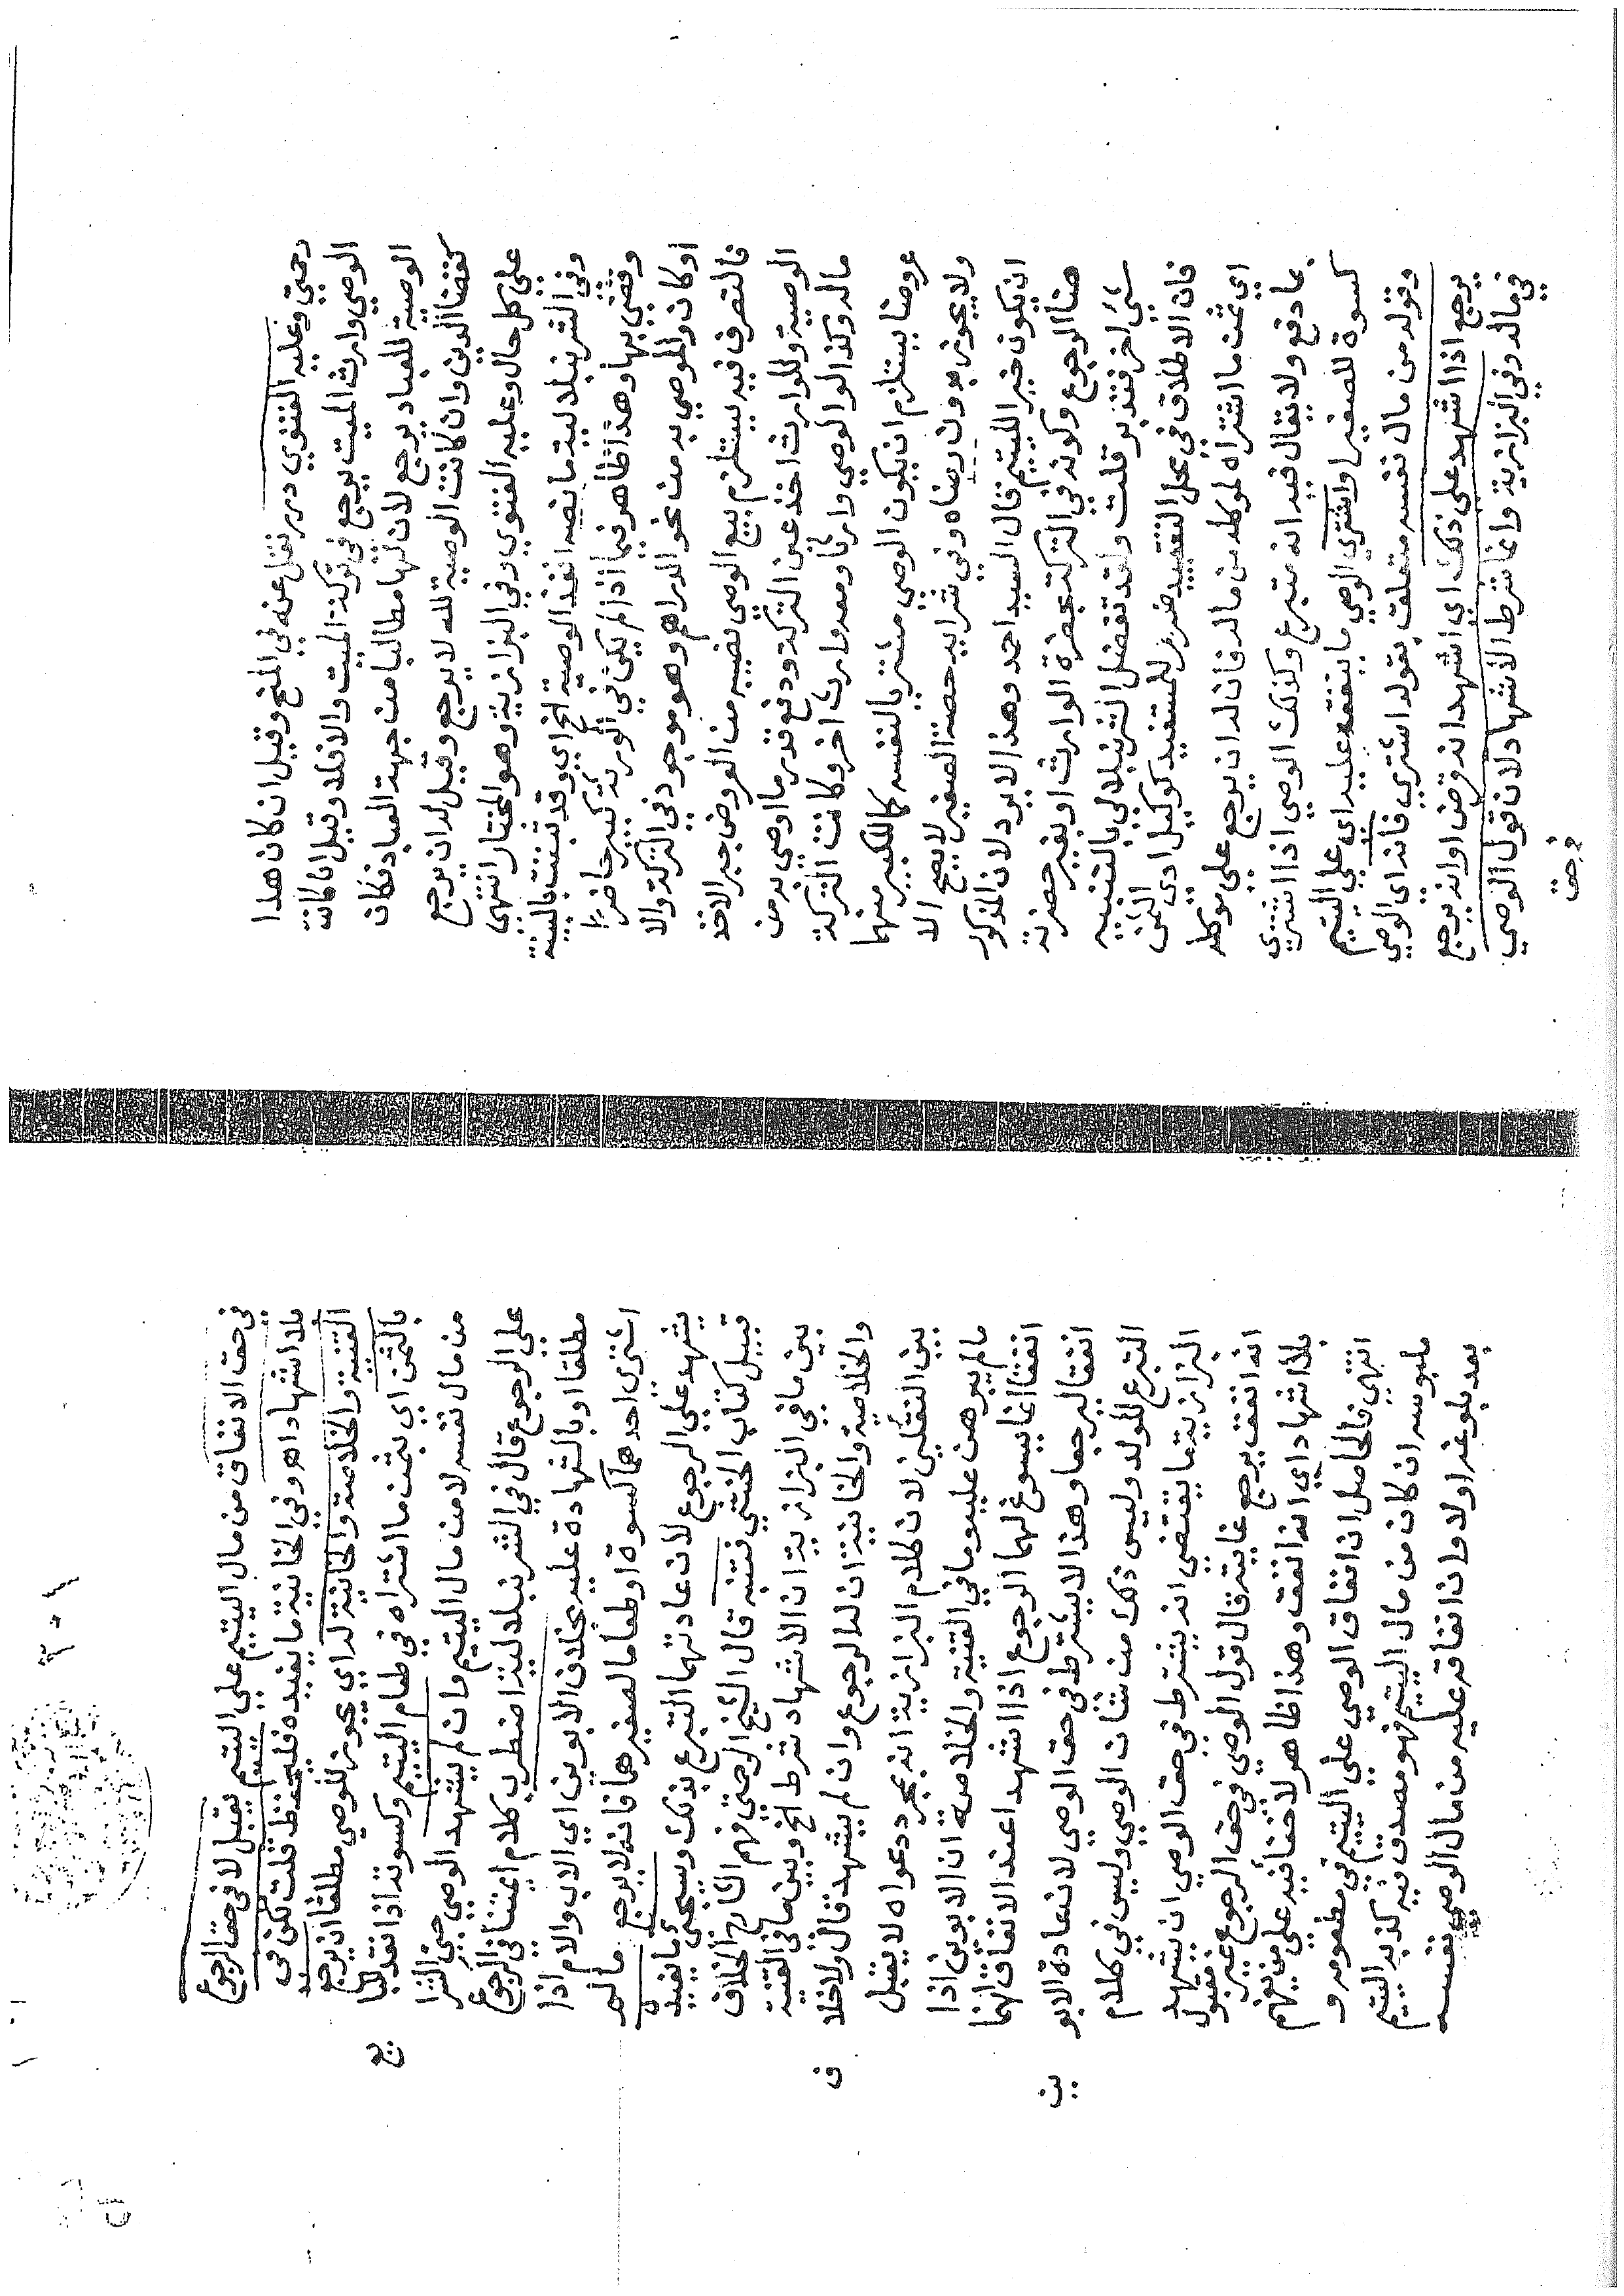 رحمتي وعليه الفتوي درر نقل عنه في المنح وقيل ان كان هذا
الوصي وارث الميت يرجع في تركة الميت والا فلا وقيل ان كانت
الوصية للعباد يرجع لان لها مطالبا من جهة العباد فكان
كقضا الدين وان كانت الوصية لله لا يرجع وقيل له ان يرجع
علي كل حال وعليه الفتوي وفي البزازية وهو المختار انتهي
وفي الشرنبلالية ما نصه انفذ الوصية الخ اي وقد ثبتت بالبينة
وقضي بها وهذا ظاهر فيما اذا لم يكن في الورثة كبير حاضر
اوكان والموصي به من نحو الدراهم وهو موجود في التركة والا
فالتصرف فيه يستلزم بيع الوصي نصيبه من العروض جبر الاخذ
الوصية وللوارث اخذ عين التركة ودفع قدر ما اوصي به من
ماله وكذا لو الوصي وارثا ومعه وارث اخر وكانت التركة
عروضا يستلزم ان يكون الوصي مشتريا لنفسه كالكبير منهما
ولا يجوز بدون رضاه وفي شرايه حصة الصغير لا يصح الا
ان يكون خير اللييتم قال السيد احمد وهذا لا يود لان المذكور
هنا الرجوع وكونه في التركة بحضرة الوارث او بغير حضرته
شي اخر فتدبر قلت ولقد تفضل الشرنبلالي بالتنبيه
فان الاطلاق في محل التقييد ضرر للمستفيد كوكيل ادي الثمن
اي ثمن ما اشتراه لموكله من ماله فان له ان يرجع علي موكله
بما دفع ولا يقال فيه انه متبرع وكذلك الوصي اذا اشتري
كسوة للصغير او اشتري الوصي ما ينفقه عليه اي علي اليتيم
وقوله من مال نفسه متعلق بقوله اشتري فانه اي الوصي
يرجع اذا اشهد علي ذلك اي اشهد انه قرض او انه يرجع
في ماله وفي البزازية وانما شرط الاشهاد لان قول الوصي
في حق
في حق الانفاق من مال اليتيم علي اليتيم يقبل لا في حق الرجوع
بلا اشهاد اهـ وفي الخانية ما يفيده فليحفظ قلت لكن في
القنية والخلاصة والخانية له اي يجوز للوصي مطلقا ان يرجع
بالثمن اي بثمن ما اشتراه في طعام اليتيم وكسوته اذا نقدهما
من مال نفسه لا من مال اليتيم وان لم يشهد الوصي حين الشرا
علي الرجوع قال في الشرنبلالية اضطرب كلام ايمتنا في الرجوع
مطلقا او بالشهادة عليه بخلاف الابوين اي الاب والام اذا
اشتري احدهما كسوة او طعاما لصغيرهما فانه لا يرجع ما لم
يشهد علي الرجوع لان عادتهما التبرع بذلك وسيجئ ما يفيده
قبيل كتاب الخنثي فتنبه قال الشيخ الرحمتي فهم الشارح الخلاف
بين ما في البزازية ان الاشهاد شرط الخ وبين ما في القنية
والخلاصة والخانية ان له الرجوع وان لم يشهد قال ولا خلاف
بين النقلين لان كلام البزازية انه بمجرد دعواه لا يقبل
ما لم يبرهن عليه وما في القنية والخلاصة ان الابوين اذا
انفقا انما يسوغ لهما الرجوع اذا اشهدا عند الانفاق انهما
انفقا ليرجعا وهذا لا يشترط في حق الوصي لان عادة الابوين
التبرع للولد وليس ذلك من شان الوصي وليس في كلام
البزازية ما يقتضي انه يشترط في حق الوصي ان يشهد
انه انفق يرجع غايته قال قول الوصي في حق الرجوع غير مقبول
بلا اشهاد اي انه انفق وهذا ظاهر لا خفا فيه علي من يفهم
انتهي فالحاصل ان انفاق الوصي علي اليتيم في مطعومه و
ملبوسه ان كان من مال اليتيم فهو مصدق فيه كذبه اليتيم
بعد بلوغه اولا وان انفاقه عليه من مال الوصي نفسه